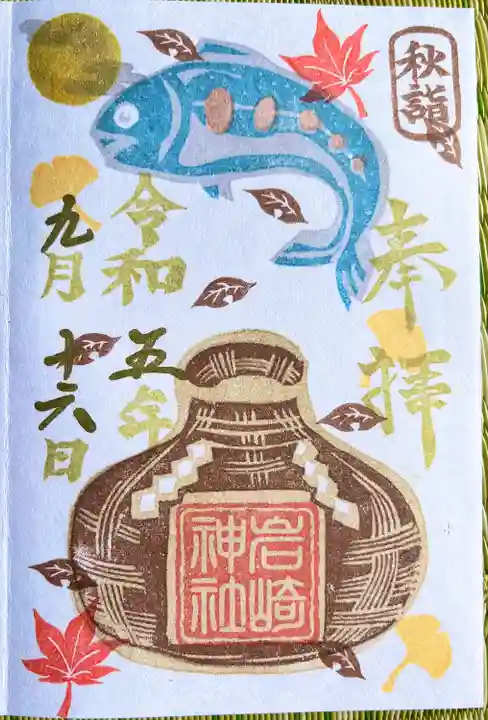 秋詣
奉拝
令和五年
九月十六日
岩崎
神社